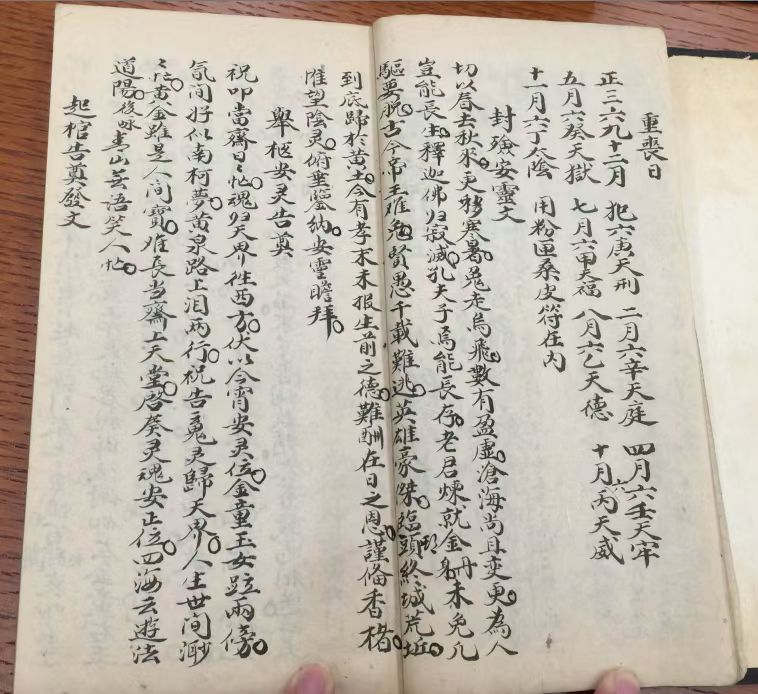 重喪日
正三六九十二月 犯六庚天刑 二月六辛天庭 四月六壬天牢
五月六癸天獄 七月六甲天福 八月六乙天德 十月六丙天威
十一月六丁太陰 用粉匣桑皮符在內
封殮安靈文
切以春去秋來更移寒暑兔走烏飛數有盈虛滄海尚且變更為人
豈能長生釋迦佛归寂滅孔夫子焉能長存老君煉就金丹身未免几
驅要脫古今帝王难免賢愚千載難逃英雄豪傑臨頭終城荒坵
到底歸於黃土今有孝 未报生前之德難酬在日之恩謹俻香楮
惟望陰灵俯垂鑒納安靈瞻拜
舉柩安灵告奠
祝叩當齋日忙忙魂归天界徃西方伏以今宵安灵位金童玉女跕兩傍
氤间好似南柯夢黃泉路上泪两行祝告冤灵歸天界人生世间渺
忙黃金雖是人间寶难長当齋上天堂啓發灵魂安正位四海云遊法
道陽後咏青山芸语笑人忙
起棺告奠發文